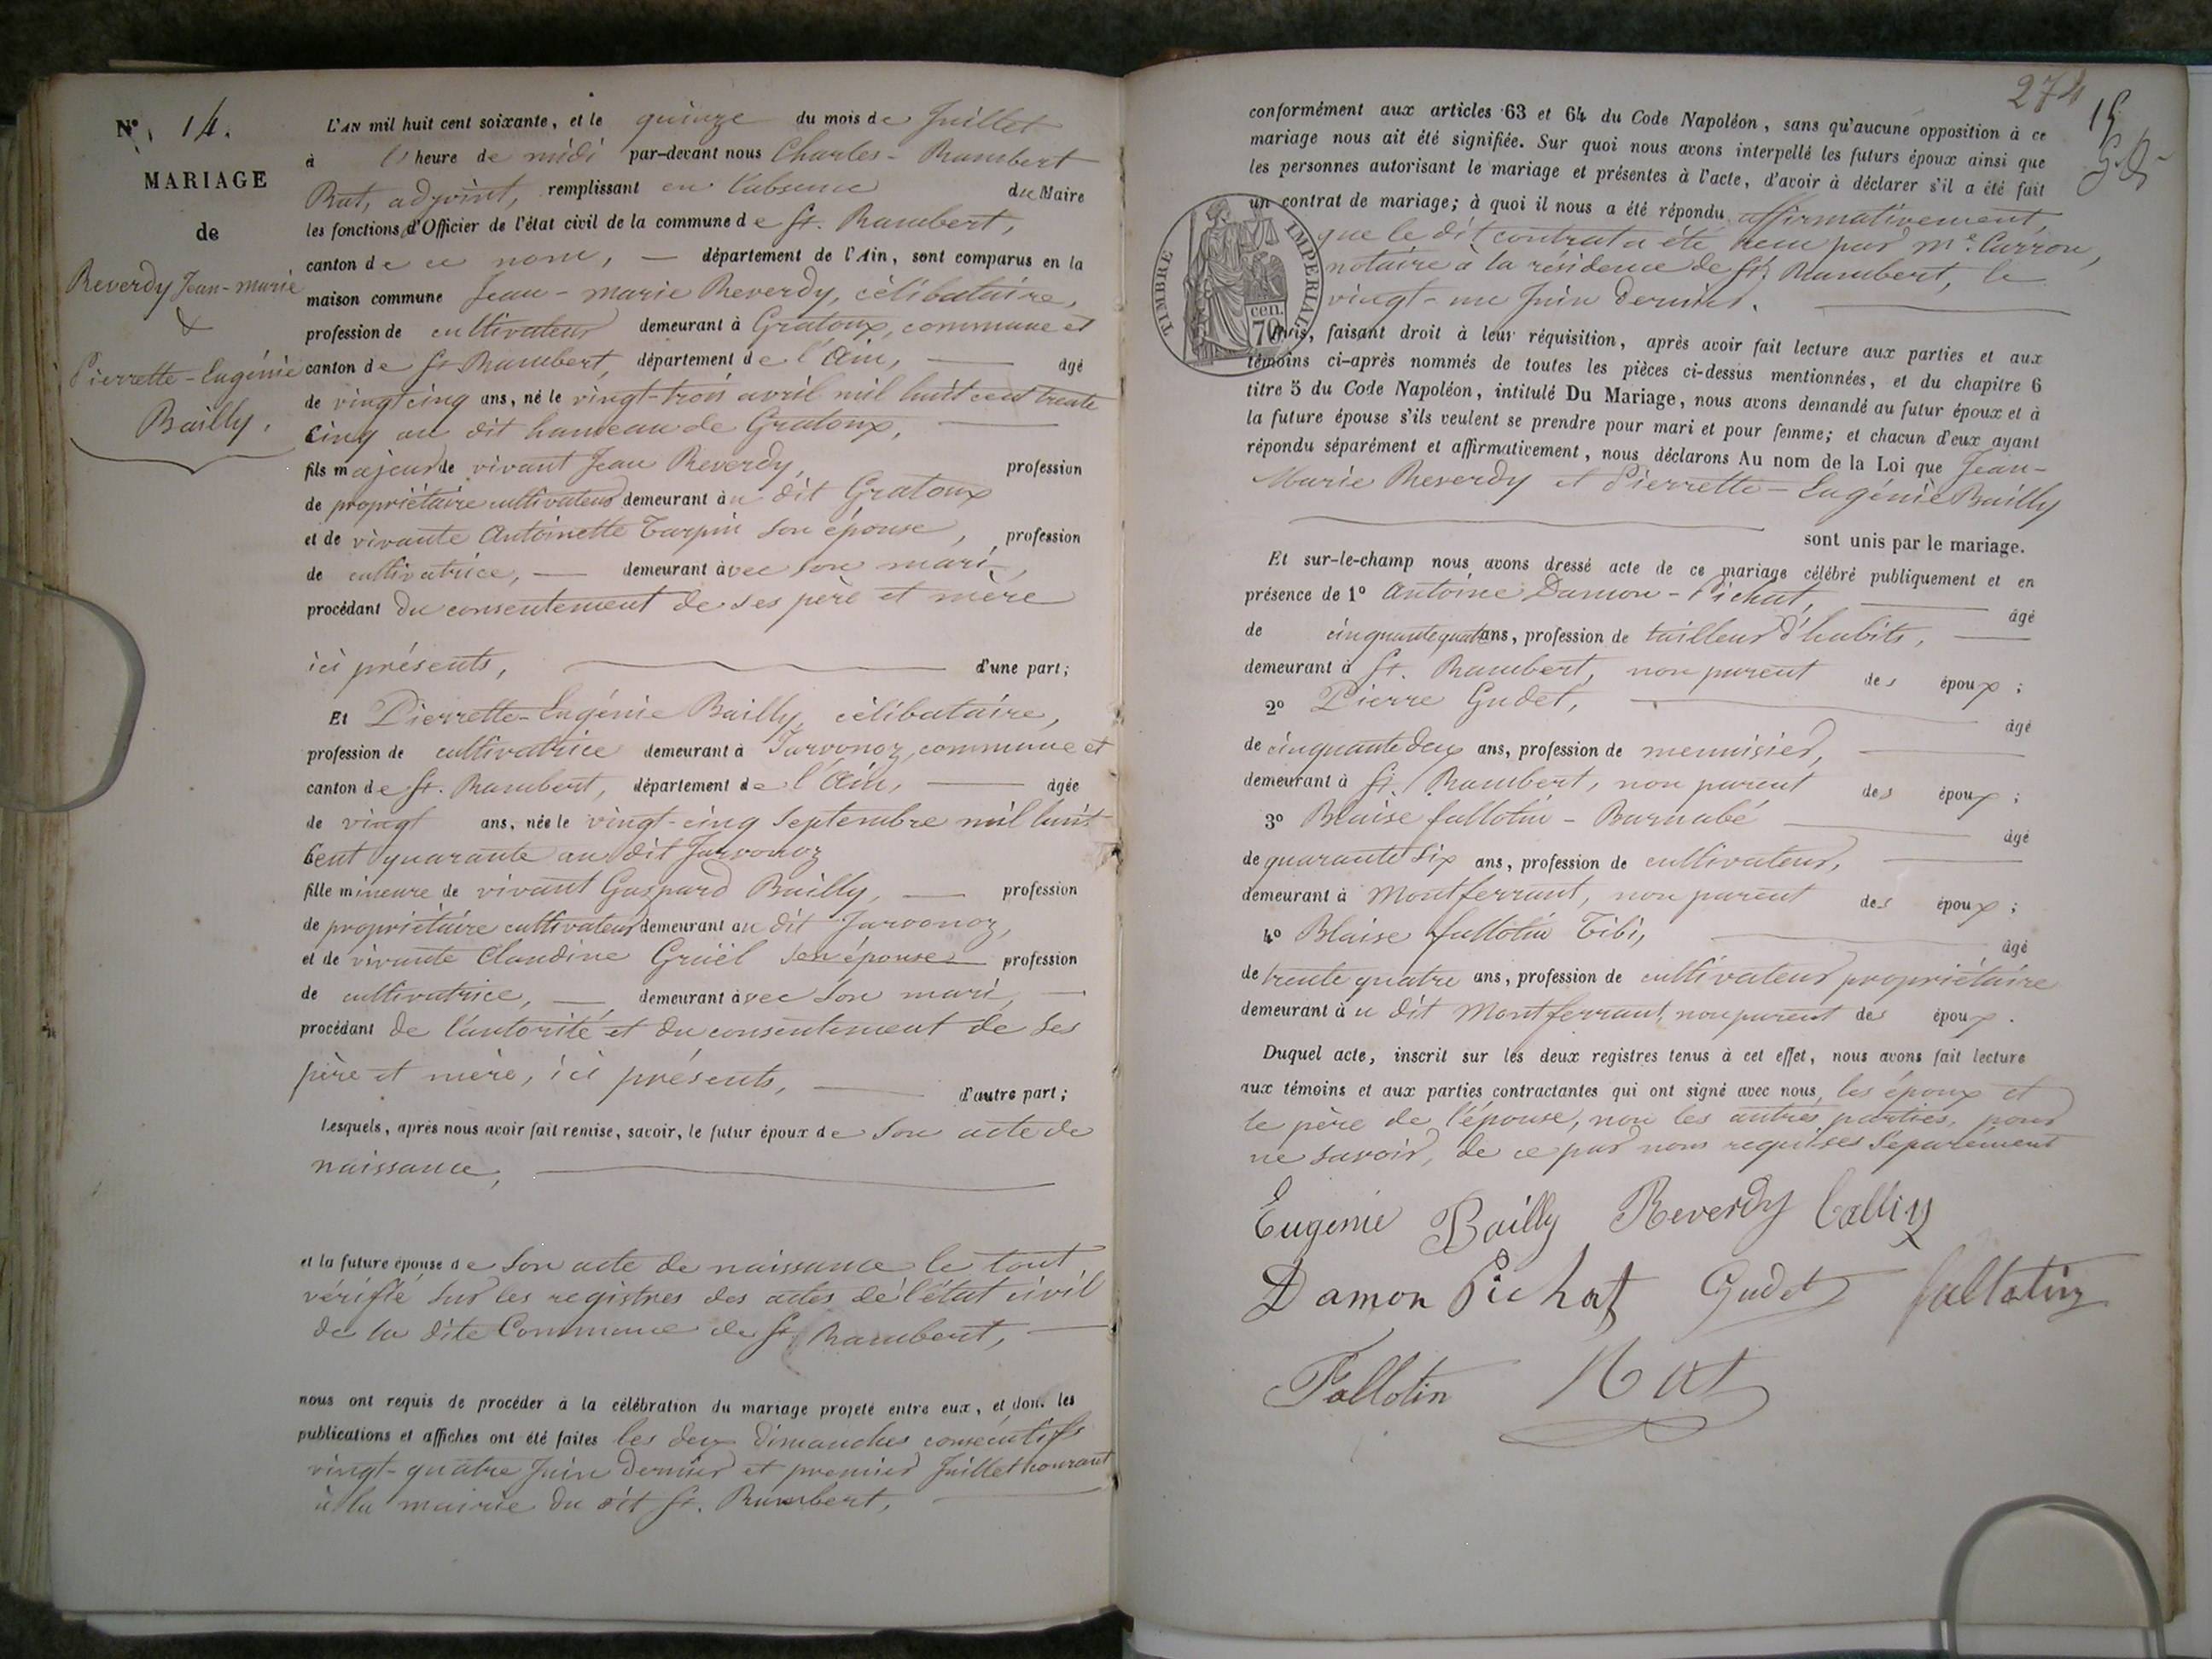 N° 14.
MARIAGE
de
Reverdy Jean-marie
&
Pierrette-Eugénie
Bailly.
L'AN mil huit cent soixante, et le quinze du mois de Juillet
à l'heure de midi par-devant nous Charles-Rambert
Rat, adjoint, remplissant en l'absence du Maire
les fonctions d'Officier de l'état civil de la commune de St. Rambert,
canton de ce nom, — département de l'Ain, sont comparus en la
maison commune Jean-marie Reverdy, célibataire,
profession de cultivateur demeurant à Gratoux, commune et
canton de St Rambert, département de l'Ain, — âgé
de vingt cinq ans, né le vingt-trois avril mil huit cent trente
cinq au dit hameau de Gratoux,
fils majeur de vivant Jean Reverdy, profession
de propriétaire cultivateur demeurant au dit Gratoux
et de vivante Antoinette Tarpin son épouse, profession
de cultivatrice, — demeurant avec son mari,
procédant du consentement de ses père et mère
ici présents, d'une part;
Et Pierrette-Eugénie Bailly, célibataire,
profession de cultivatrice demeurant à Javornoz, commune et
canton de St. Rambert, département de l'Ain, — âgée
de vingt ans, née le vingt-cinq Septembre mil huit
cent quarante au dit Javornoz
fille mineure de vivant Gaspard Bailly, — profession
de propriétaire cultivateur demeurant au dit Javornoz,
et de vivante Claudine Grüël son épouse profession
de cultivatrice, — demeurant avec son mari, —
procédant de l'autorité et du consentement de ses
père et mère, ici présents, — d'autre part;
Lesquels, après nous avoir fait remise, savoir, le futur époux de son acte de
naissance,
et la future épouse de son acte de naissance le tout
vérifié sur les registres des actes de l'état civil
de la dite Commune de St. Rambert, —
nous ont requis de procéder à la célébration du mariage projeté entre eux, et dont les
publications et affiches ont été faites les deux dimanches consécutifs
vingt-quatre Juin dernier et premier Juillet courant
à la mairie du dit St. Rambert,
274
15
conformément aux articles 63 et 64 du Code Napoléon, sans qu'aucune opposition à ce
mariage nous ait été signifiée. Sur quoi nous avons interpellé les futurs époux ainsi que
les personnes autorisant le mariage et présentes à l'acte, d'avoir à déclarer s'il a été fait
un contrat de mariage; à quoi il nous a été répondu affirmativement,
que le dit contrat a été reçu par Me. Carron,
notaire à la résidence de St. Rambert, le
vingt-un Juin dernier.
TIMBRE IMPERIAL
70 cen.
Puis, faisant droit à leur réquisition, après avoir fait lecture aux parties et aux
témoins ci-après nommés de toutes les pièces ci-dessus mentionnées, et du chapitre 6
titre 5 du Code Napoléon, intitulé Du Mariage, nous avons demandé au futur époux et à
la future épouse s'ils veulent se prendre pour mari et pour femme; et chacun d'eux ayant
répondu séparément et affirmativement, nous déclarons Au nom de la Loi que Jean-
Marie Reverdy et Pierrette-Eugénie Bailly
sont unis par le mariage.
Et sur-le-champ nous avons dressé acte de ce mariage célébré publiquement et en
présence de 1° Antoine Damon-Pichat, âgé
de cinquante quatre ans, profession de tailleur d'habits,
demeurant à St. Rambert, non parent des époux;
2° Pierre Gudet, âgé
de cinquante deux ans, profession de menuisier,
demeurant à St. Rambert, non parent des époux;
3° Blaise fallotin-Barnabé âgé
de quarante six ans, profession de cultivateur,
demeurant à Montferrant, non parent des époux;
4° Blaise fallotin Tibi, âgé
de trente quatre ans, profession de cultivateur propriétaire
demeurant au dit Montferrant, non parent des époux.
Duquel acte, inscrit sur les deux registres tenus à cet effet, nous avons fait lecture
aux témoins et aux parties contractantes qui ont signé avec nous, les époux et
le père de l'épouse, non les autres parties, pour
ne savoir, de ce par nous requises séparément
Eugénie Bailly Reverdy Bailly
Damon Pichat Gudet fallotin
Fallotin Rat